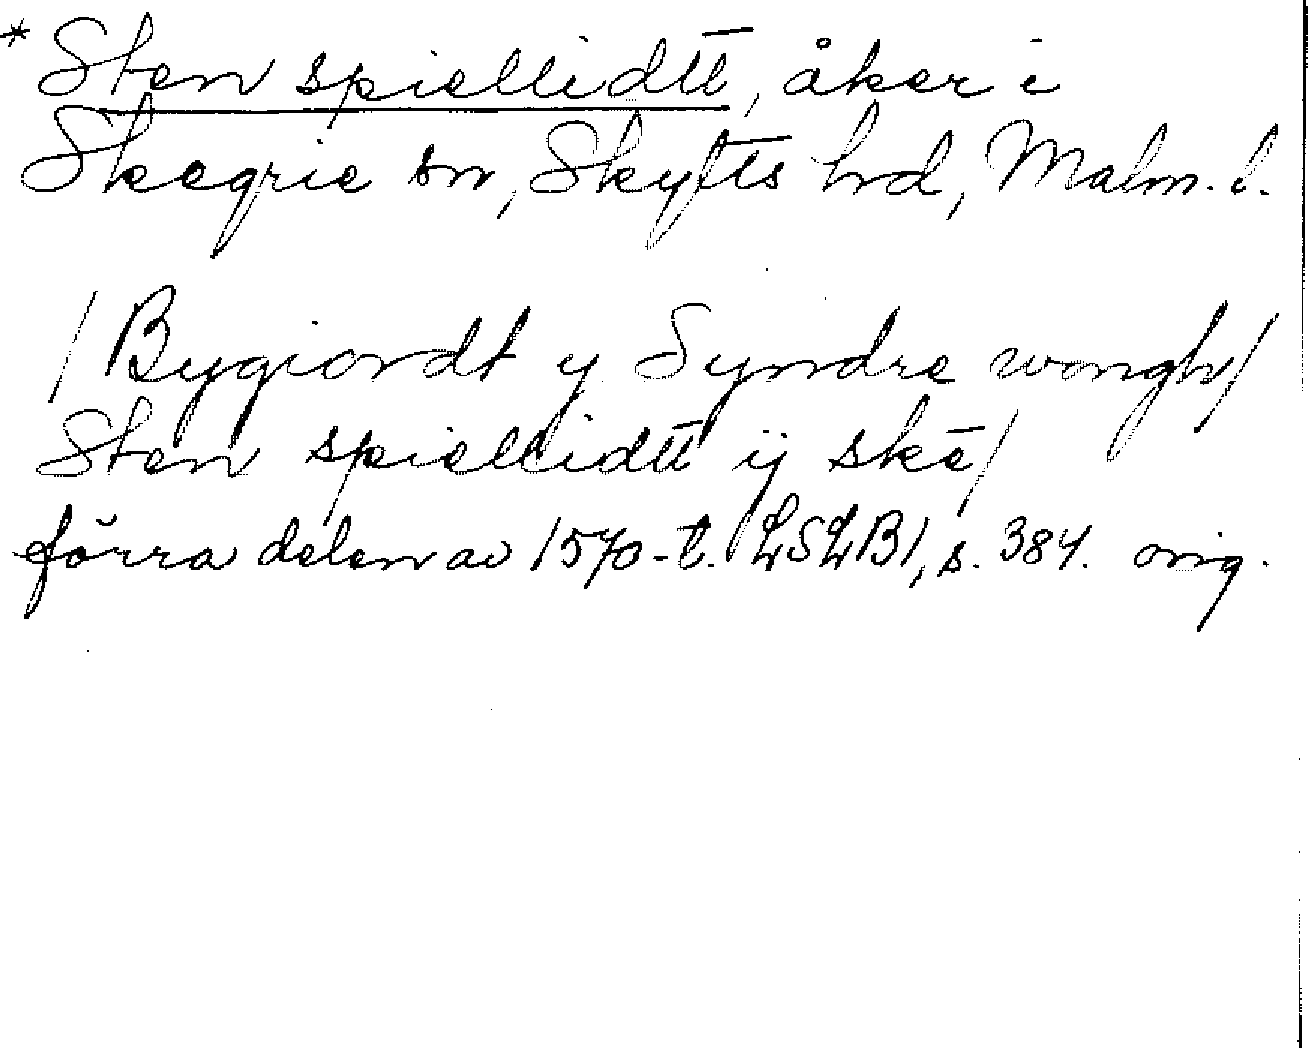 * Sten spiellidtt, åker i
Skegrie sn, Skytts hd, Malm. l.
/Bygiordt y Syndre wongh/
Sten spiellidtt ij skē/
förra delen av 1570-t. LSLB1, s. 384. orig.